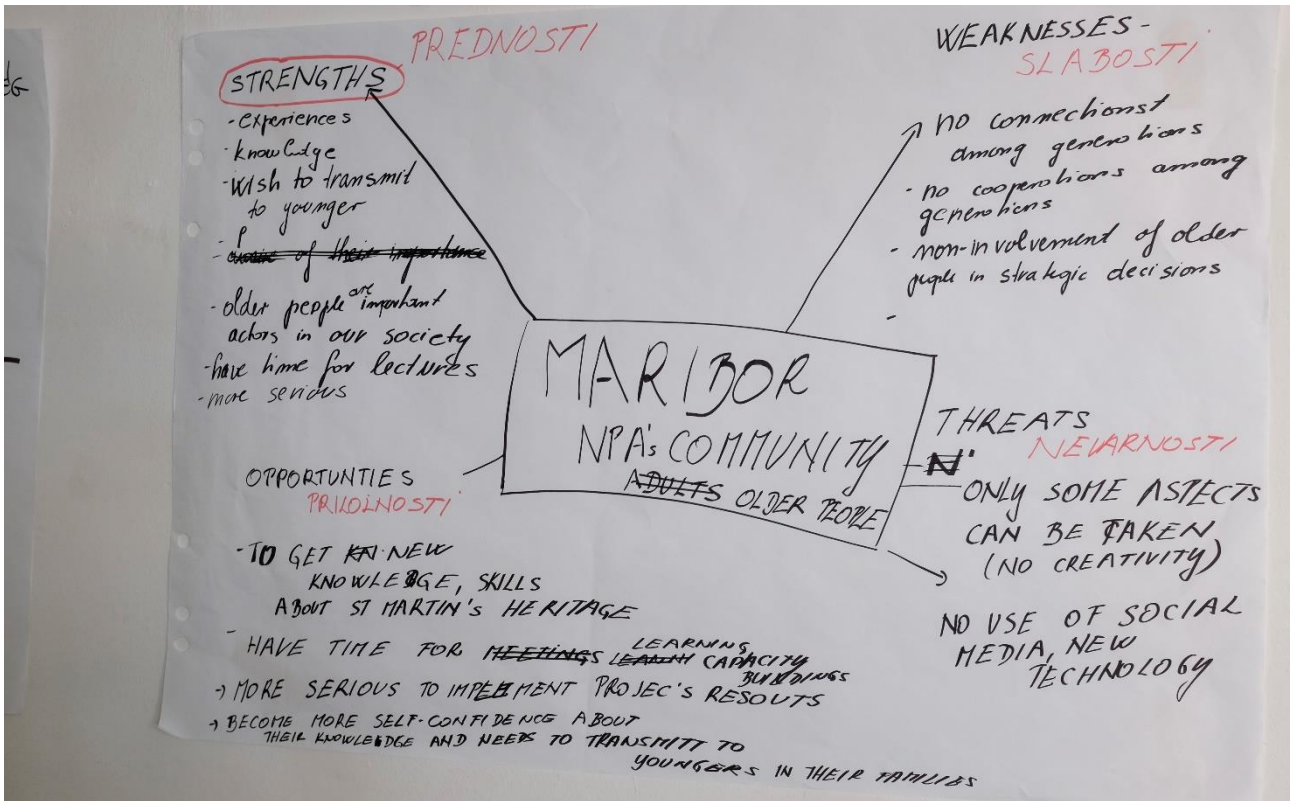 dG
PREDNOSTI
STRENGTHS
- experiences
- knowledge
- wish to transmit
to younger
- P
of their importance
- older people are important
actors in our society
- have time for lectures
- more serious
WEAKNESSES -
SLABOSTI
no connectionst
among generations
- no cooperations among
generations
- non-involvement of older
people in strategic decisions
-
MARIBOR
NPA's COMMUNITY
ADULTS OLDER PEOPLE
THREATS
NEVARNOSTI
N
ONLY SOME ASPECTS
CAN BE TAKEN
(NO CREATIVITY)
NO USE OF SOCIAL
MEDIA, NEW
TECHNOLOGY
OPPORTUNTIES
PRILOŽNOSTI
- TO GET KN NEW
KNOWLEDGE, SKILLS
ABOUT ST MARTIN'S HERITAGE
- HAVE TIME FOR MEETINGS LEARNING CAPACITY
BUILDINGS
→ MORE SERIOUS TO IMPLEMENT PROJEC'S RESOUTS
→ BECOME MORE SELF-CONFIDENCE ABOUT
THEIR KNOWLEDGE AND NEEDS TO TRANSMITT TO
YOUNGERS IN THEIR FAMILIES